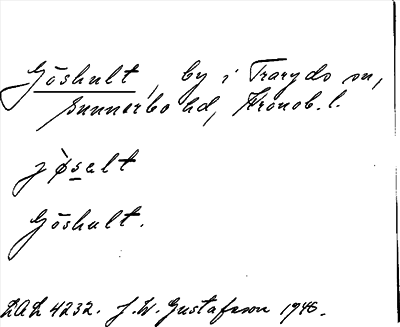 Göshult, by i Traryds sn,
Sunnerbo hd, Kronob. l.
jø̀salt
Göshult.
LAL 4232. J. W. Gustafsson 1946.